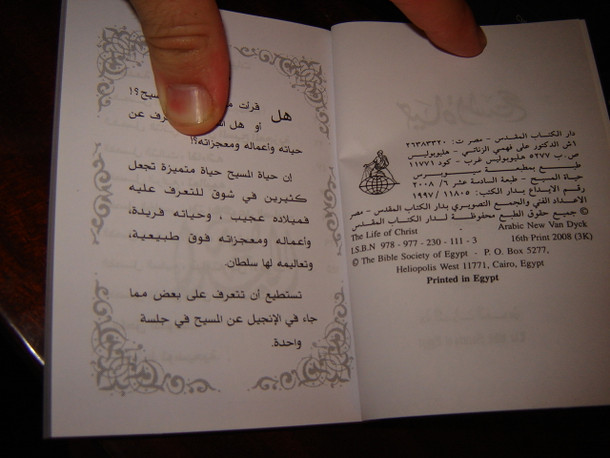 دار الكتاب المقدس - مصر ت: ٢٦٣٨٣٣٢٠
١ش الدكتور على فهمى الزناتى - هليوبوليس
ص.ب ٥٢٧٧ هليوبوليس غرب - كود ١١٧٧١
طبع بمطبعة سيوبرس
حياة المسيح - طبعة السادسة عشر ٢٠٠٨/٦
رقم الإيداع بدار الكتب: ١٩٩٧/١١٨٠٥
الاعداد الفنى والجمع التصويرى بدار الكتاب المقدس - مصر
© جميع حقوق الطبع محفوظة لدار الكتاب المقدس
The Life of Christ Arabic New Van Dyck
I.S.B.N 978 - 977 - 230 - 111 - 3 16th Print 2008 (3K)
© The Bible Society of Egypt - P. O. Box 5277,
Heliopolis West 11771, Cairo, Egypt
Printed in Egypt
هل قرأت
أو هل عن
حياته وأعماله ومعجزاته؟!
إن حياة المسيح حياة متميزة تجعل
كثيرين في شوق للتعرف عليه
فميلاده عجيب ، وحياته فريدة،
وأعماله ومعجزاته فوق طبيعية،
وتعاليمه لها سلطان.
تستطيع أن تتعرف على بعض مما
جاء في الإنجيل عن المسيح في جلسة
واحدة.